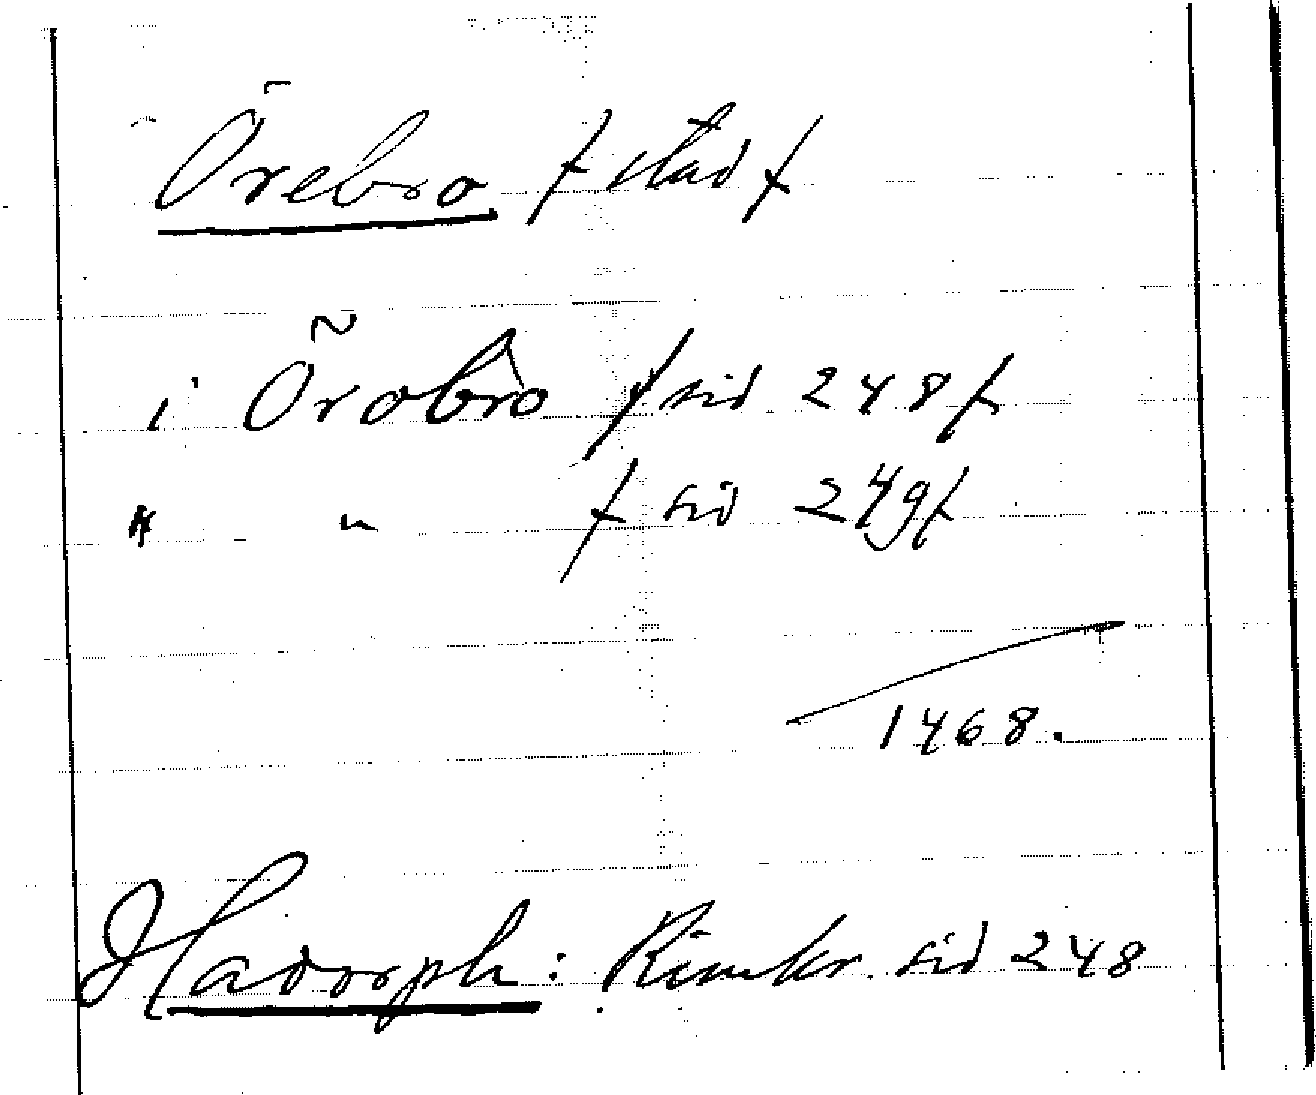 Örebro ƒ stad ƒ
i Örobro ƒ sid 248 ƒ
" " ƒ sid 249 ƒ
1468.
Hadorph: Rimkr. sid 248